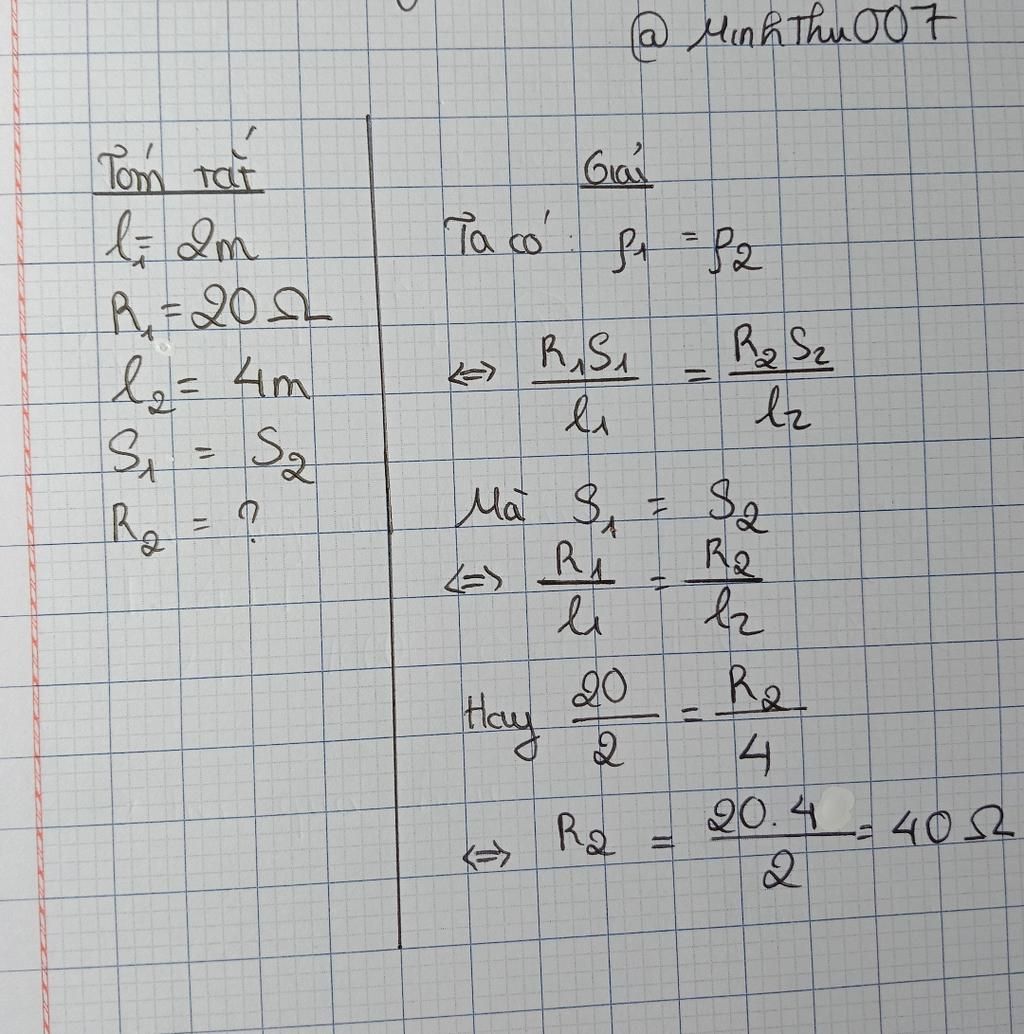 @ MinhThu007
Tóm tắt
l₁ = 2m
R₁ = 20 Ω
l₂ = 4m
S₁ = S₂
R₂ = ?
Giải
Ta có: ρ₁ = ρ₂
<=> R₁S₁/l₁ = R₂S₂/l₂
Mà S₁ = S₂
<=> R₁/l₁ = R₂/l₂
Hay 20/2 = R₂/4
<=> R₂ = 20.4/2 = 40 Ω